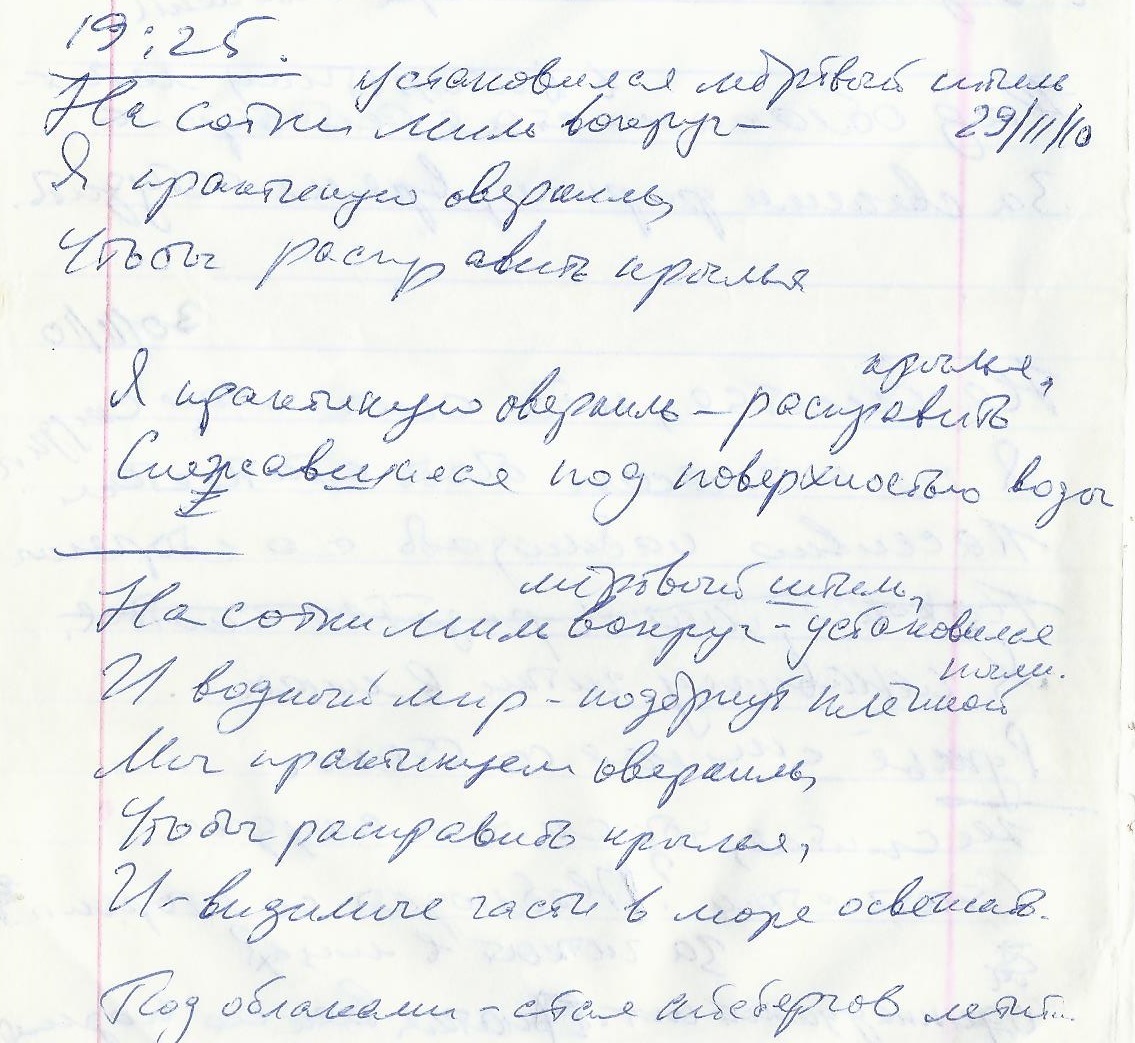 19:25.
установился мёртвый штиль
На сотни миль вокруг –
29/11/10
Я практикую оверкиль,
Чтобы расправить крылья
крылья,
Я практикую оверкиль – расправить
Слежавшиеся под поверхностью воды
мёртвый штиль,
На сотни миль вокруг – установился
пыли.
И водный мир – подёрнут плёнкой
Мы практикуем оверкиль,
Чтобы расправить крылья,
И – видимые части в море освежать.
Под облаками – стая айсбергов летит...